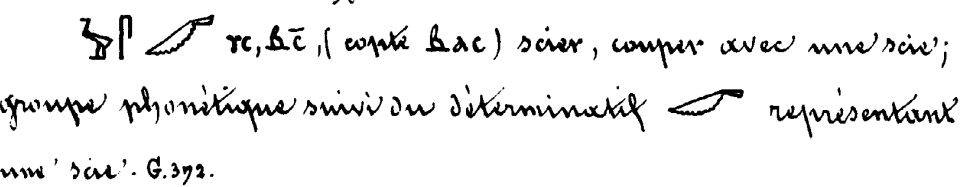 , ⲃⲥ̄, (copte ⲃⲁⲥ) scier, couper avec une scie;
groupe phonétique suivi du déterminatif représentant
une scie. G. 372.